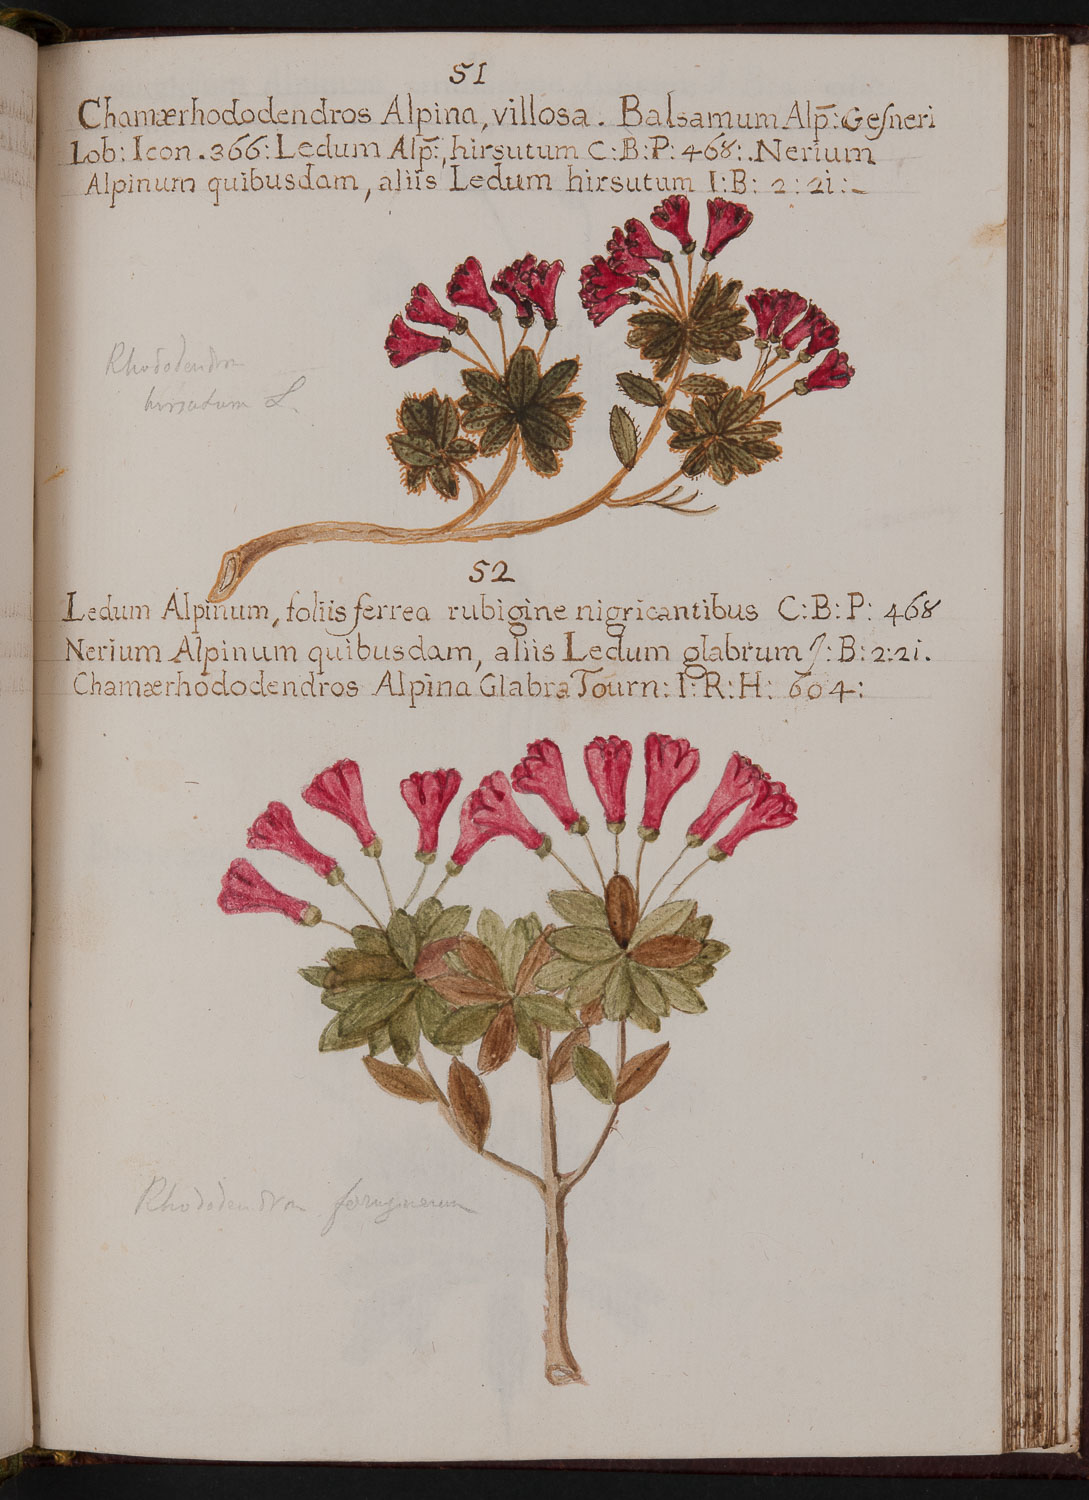 51
Chamærhododendros Alpina, villosa. Balsamum Alp̄: Geſneri
Lob: Icon. 366: Ledum Alp̄:, hirsutum C:B:P: 468:. Nerium
Alpinum quibusdam, aliis Ledum hirsutum I:B: 2:2i:
Rhododendron
hirsutum L.
52
Ledum Alpinum, foliis ferrea rubigine nigricantibus C:B:P: 468
Nerium Alpinum quibusdam, aliis Ledum glabrum J:B:2:2i.
Chamærhododendros Alpina Glabra Tourn: I:R:H: 604:
Rhododendron ferrugineum